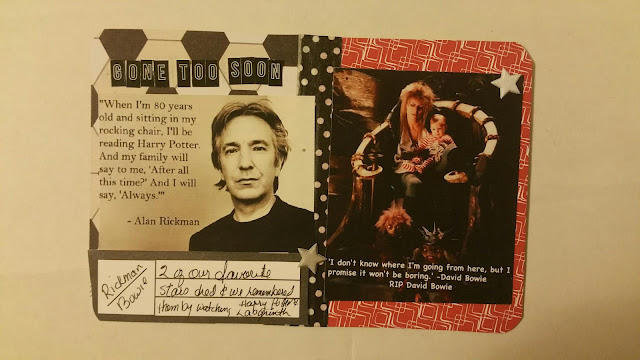 GONE TOO SOON
"When I'm 80 years
old and sitting in my
rocking chair, I'll be
reading Harry Potter.
And my family will
say to me, 'After all
this time?' And I will
say, 'Always.'"
- Alan Rickman
Rickman
Bowie
2 of our favorite
stars died & we remembered
them by watching Harry Potter &
Labyrinth
'I don't know where I'm going from here, but I
promise it won't be boring.' -David Bowie
RIP David Bowie